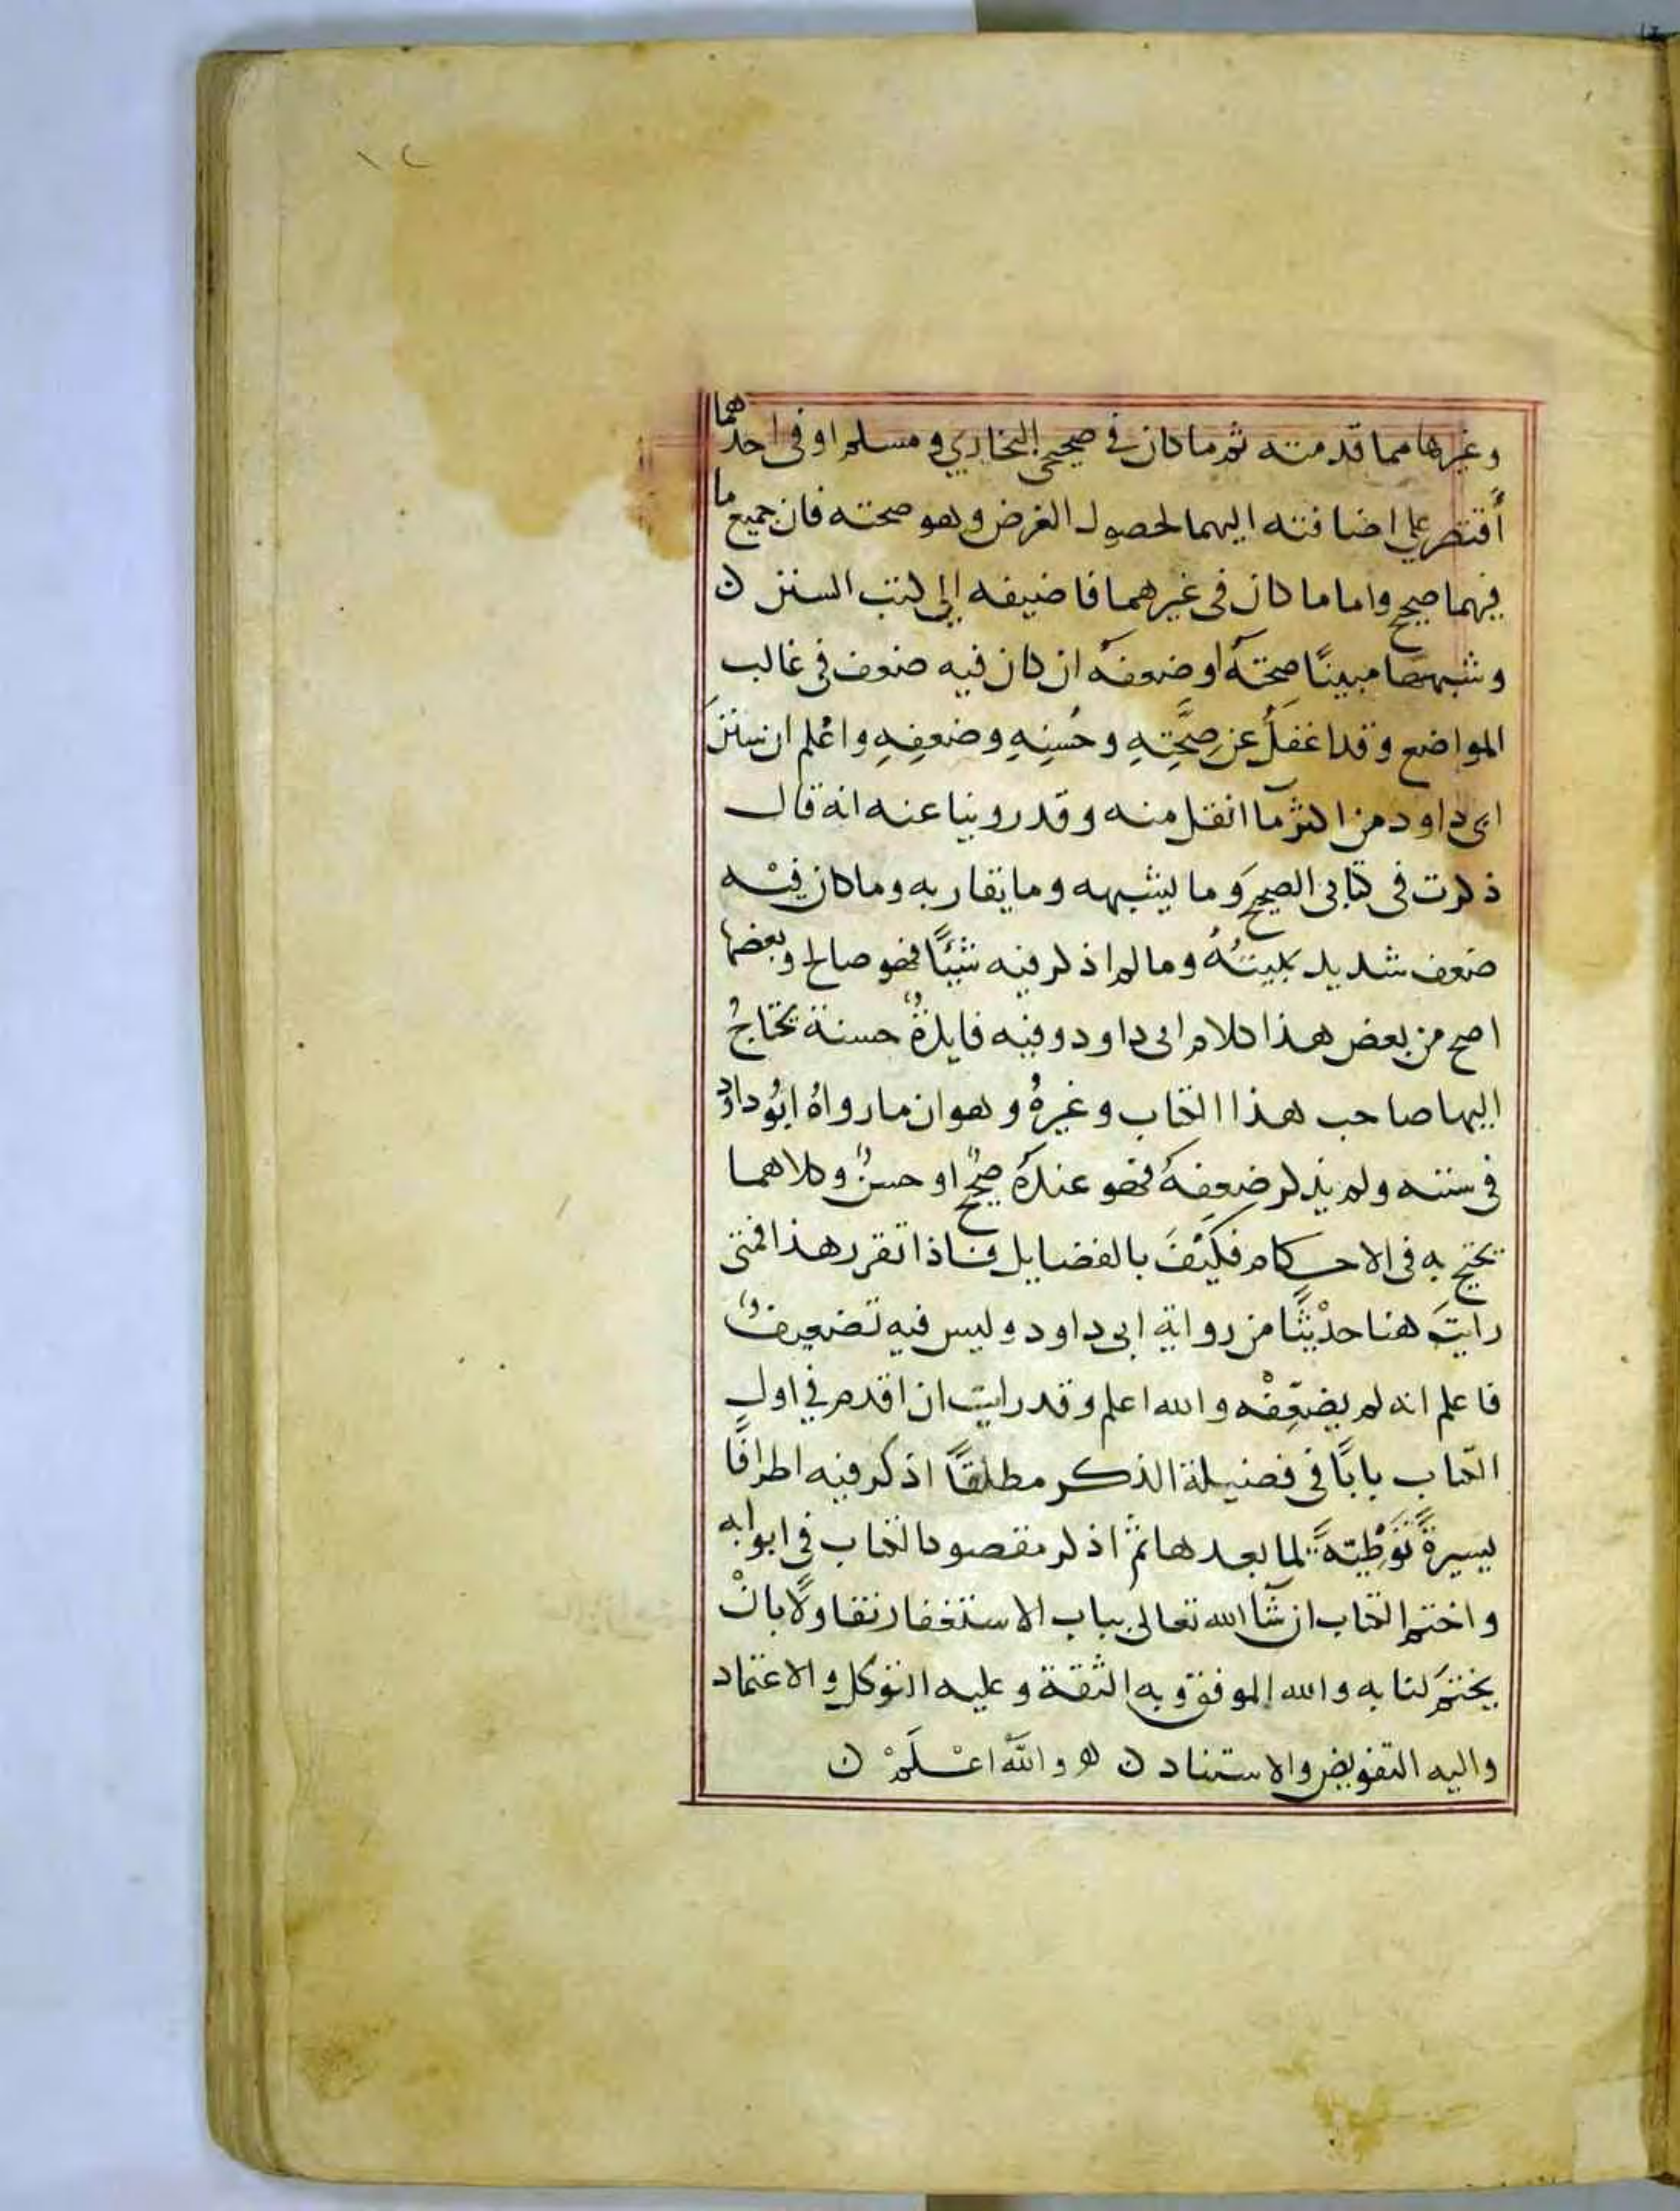 ١٢
وغيرها مما قدمته ثم ما كان في صحيحي البخاري ومسلم او فى احدهما
أقتصر على اضافته اليهما لحصول الغرض وهو صحته فان جميع ما
فيهما صحيح واما ما كان فى غيرهما فاضيفه إلى كتب السنن ن
وشبهها مبينًا صحتهُ او ضعفهُ ان كان فيه ضعف فى غالب
المواضع وقد اغفلُ عن صِحَّتِهِ وحُسنِهِ وضعفِهِ واعْلم ان سنن
ابى داود من اكثر ما انقل منه وقد روينا عنه انه قال
ذكرت فى كتابى الصحيح وَما يشبهه وما يقاربه وما كان فيْه
ضعف شديد بينتُهُ وما لم اذكر فيه شيئًا فهو صالح وبعضها
اصح من بعض هذا كلام ابى داود وفيه فايدةٌ حسنة يحتاجُ
اليها صاحب هذا الكتاب وغيرهُ وهو ان ما رواهُ ابُو داود
فى سننه ولم يذكر ضعفهُ فهو عندهُ صحيحٌ او حسنٌ وكلاهما
يحتج به فى الاحكام فكيْفَ بالفضايل فاذا تقرر هذا فمتى
رايتَ هنا حدْيثًا من رواية ابى داود وليس فيه تضعيفٌ
فاعلم انه لم يضعِّفْه والله اعلم وقد رايت ان اقدم في اول
الكتاب بابًا فى فضيلة الذكر مطلقًا اذكر فيه اطرافًا
يسيرةً تَوْطِيَةً لما بعدها ثم اذكر مقصود الكتاب فى ابوابه
واختم الكتاب ان شآ الله تعالى بباب الاستغفار تفاولًا بانْ
يختمَ لنا به والله الموفق وبه الثقة وعليه التوكل والاعتماد
واليه التفويض والاستناد ن ه والله اعْلَمْ ن